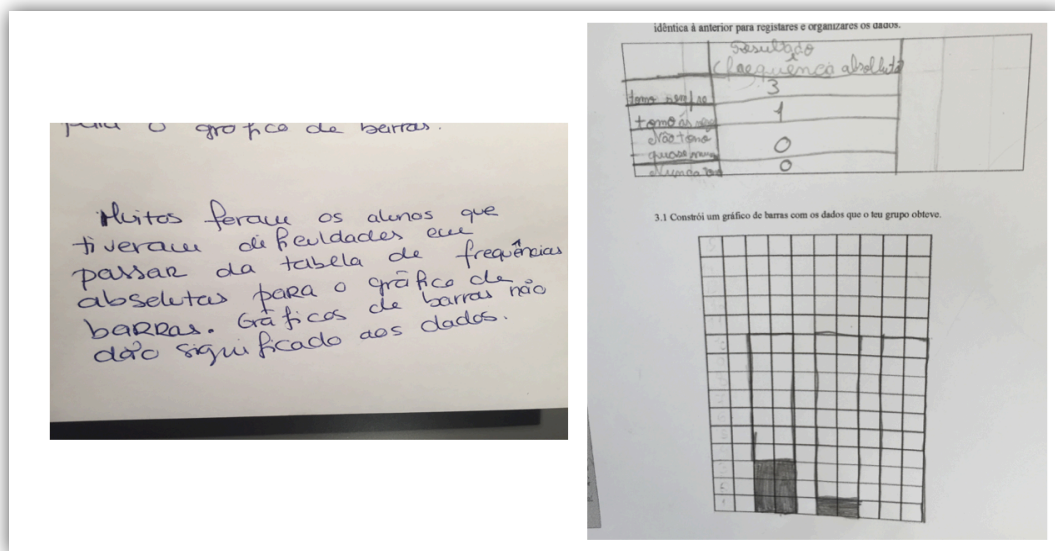 para o gráfico de barras.
Muitos foram os alunos que
tiveram dificuldades em
passar da tabela de frequências
absolutas para o gráfico de
barras. Gráficos de barras não
dão significado aos dados.
idêntica à anterior para registares e organizares os dados.
Resultado
(frequência absoluta)
3
tomo sempre
1
tomo às
0
Não tomo
quase nunca
0
Nunca
3.1 Constrói um gráfico de barras com os dados que o teu grupo obteve.